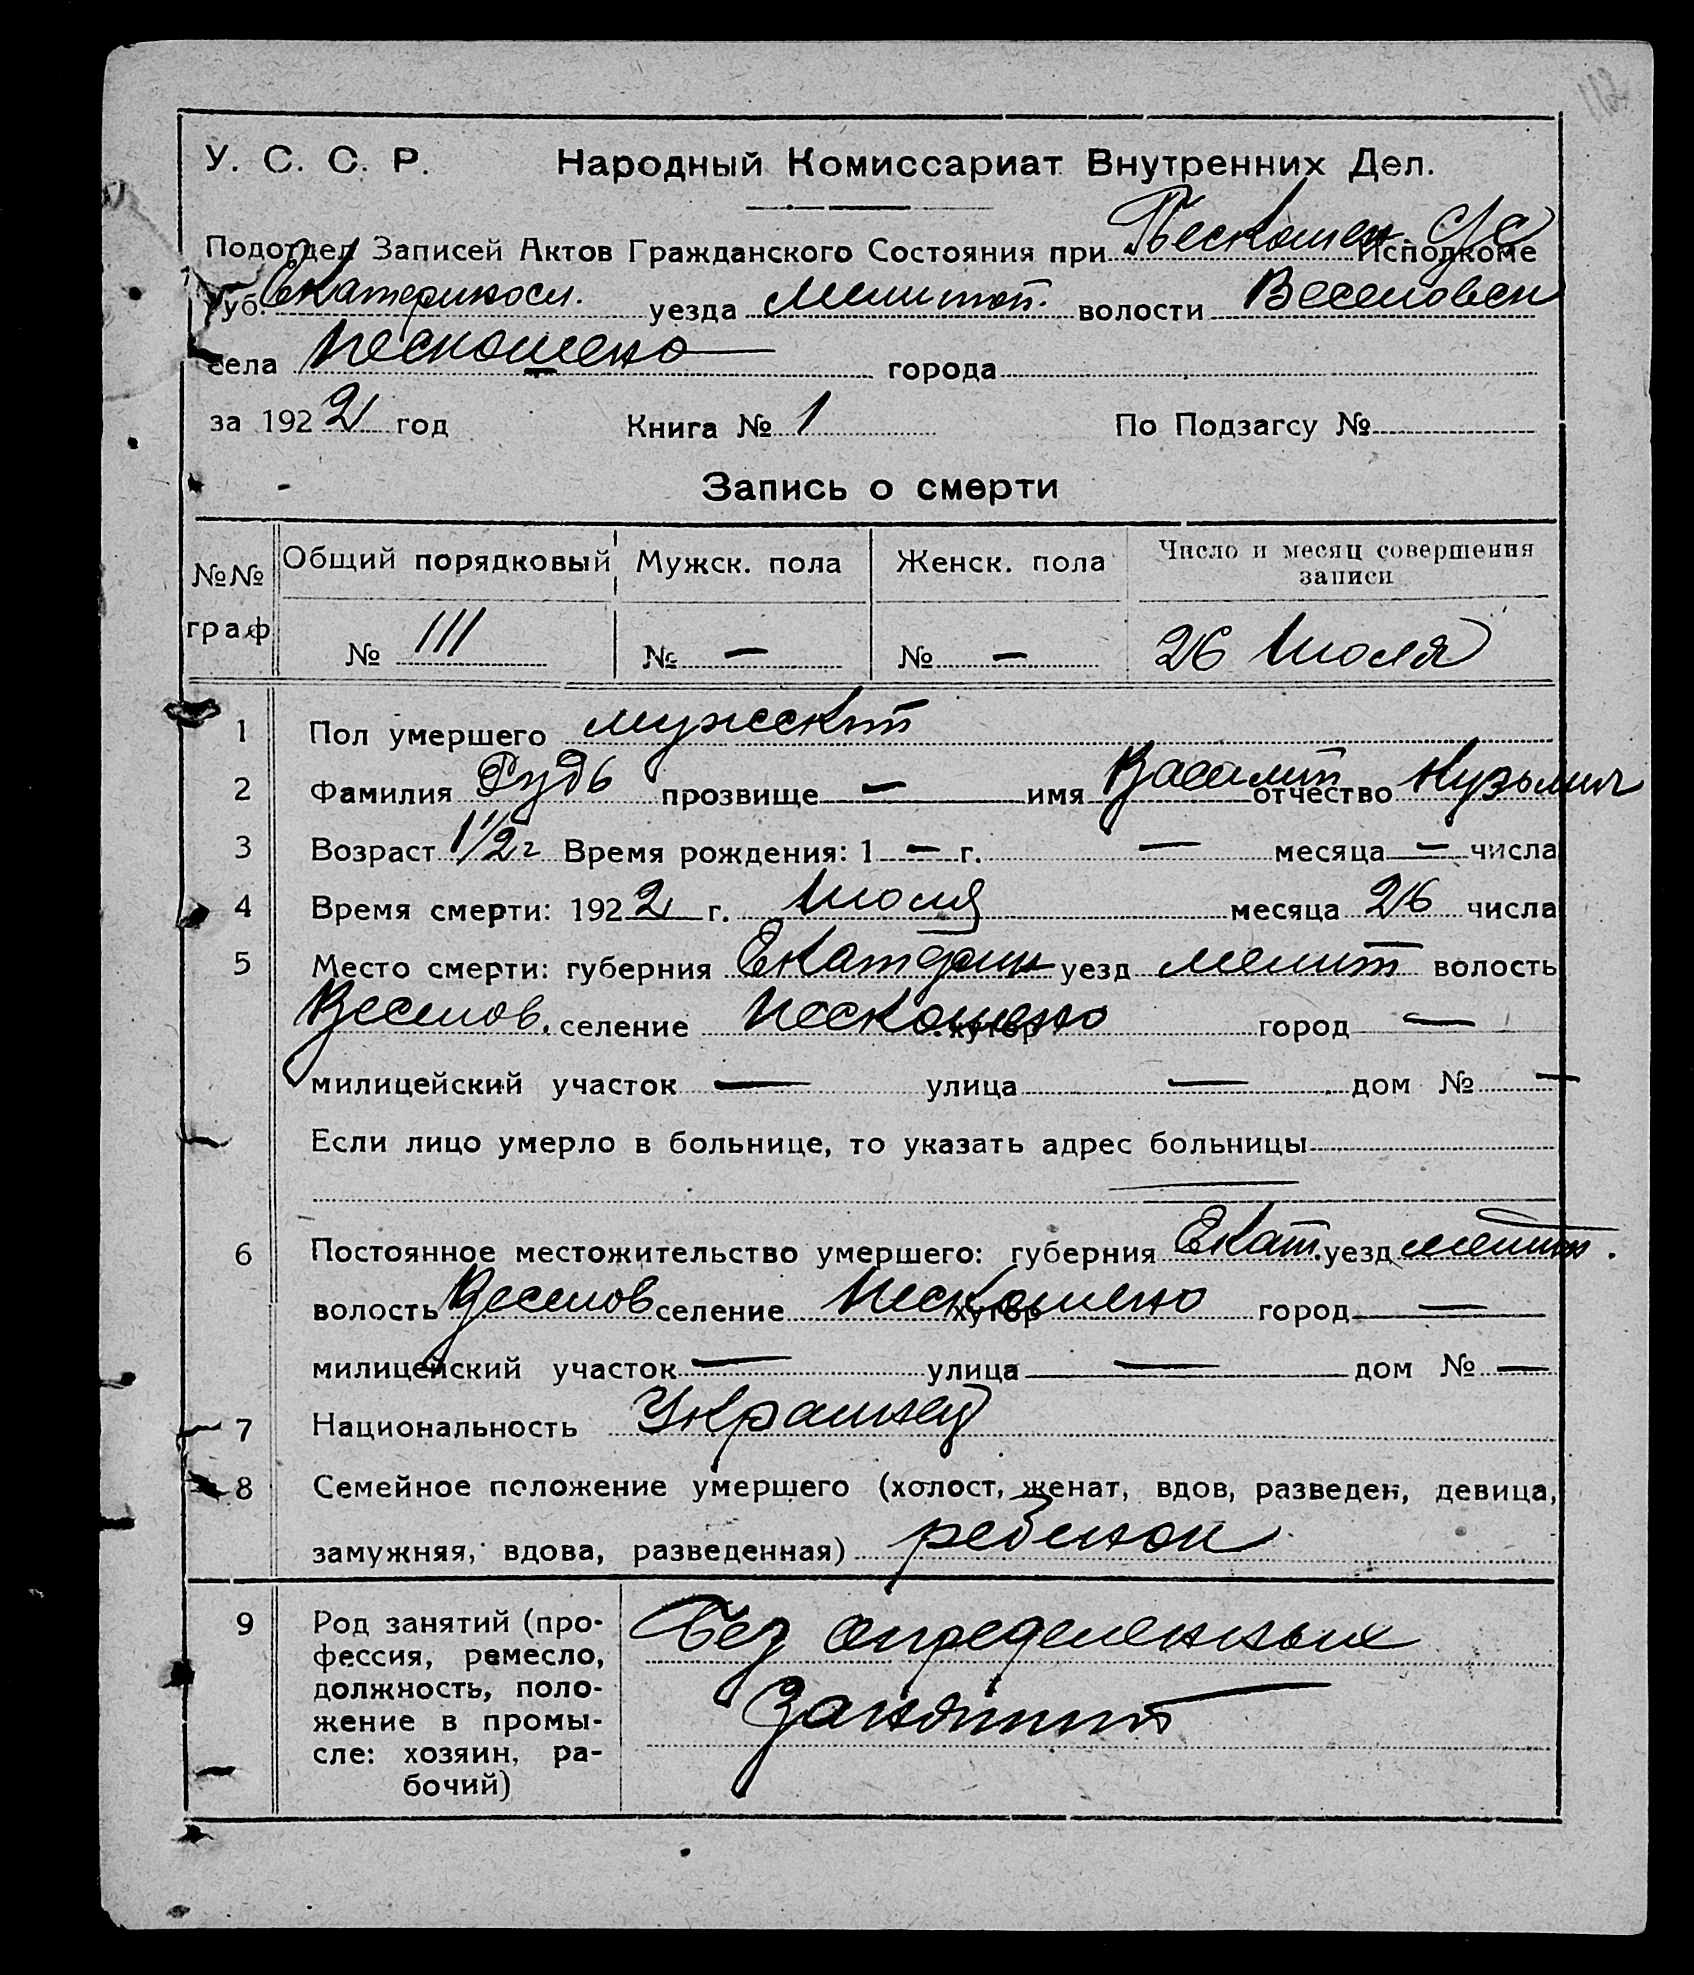 112
У. С. С. Р. Народный Комиссариат Внутренних Дел.
Подотдел Записей Актов Гражданского Состояния при Пескошен. с/с Исполкоме
Губ. Екатериносл. уезда Мелитоп. волости Веселовск
села Пескошено города
за 1922 год Книга № 1 По Подзагсу №
Запись о смерти
№№ граф Общий порядковый Мужск. пола Женск. пола Число и месяц совершения записи
№ 111 № — № — 26 Июля
1 Пол умершего мужской
2 Фамилия Рудь прозвище — имя Василий отчество Кузьмич
3 Возраст 1 1/2 г Время рождения: 1 — г. — месяца — числа
4 Время смерти: 1922 г. Июля месяца 26 числа
5 Место смерти: губерния уезд Мелит волость
Веселов. селение Пескошено хутор город —
милицейский участок — улица — дом № —
Если лицо умерло в больнице, то указать адрес больницы
—
6 Постоянное местожительство умершего: губерния Екат. уезд Мелит.
волость Веселов селение Пескошено хутор город —
милицейский участок — улица — дом № —
7 Национальность Украинец
8 Семейное положение умершего (холост, женат, вдов, разведен, девица,
замужняя, вдова, разведенная) ребенок
9 Род занятий (про- Без определенных
фессия, ремесло,
должность, поло- занятий
жение в промы-
сле: хозяин, ра-
бочий)